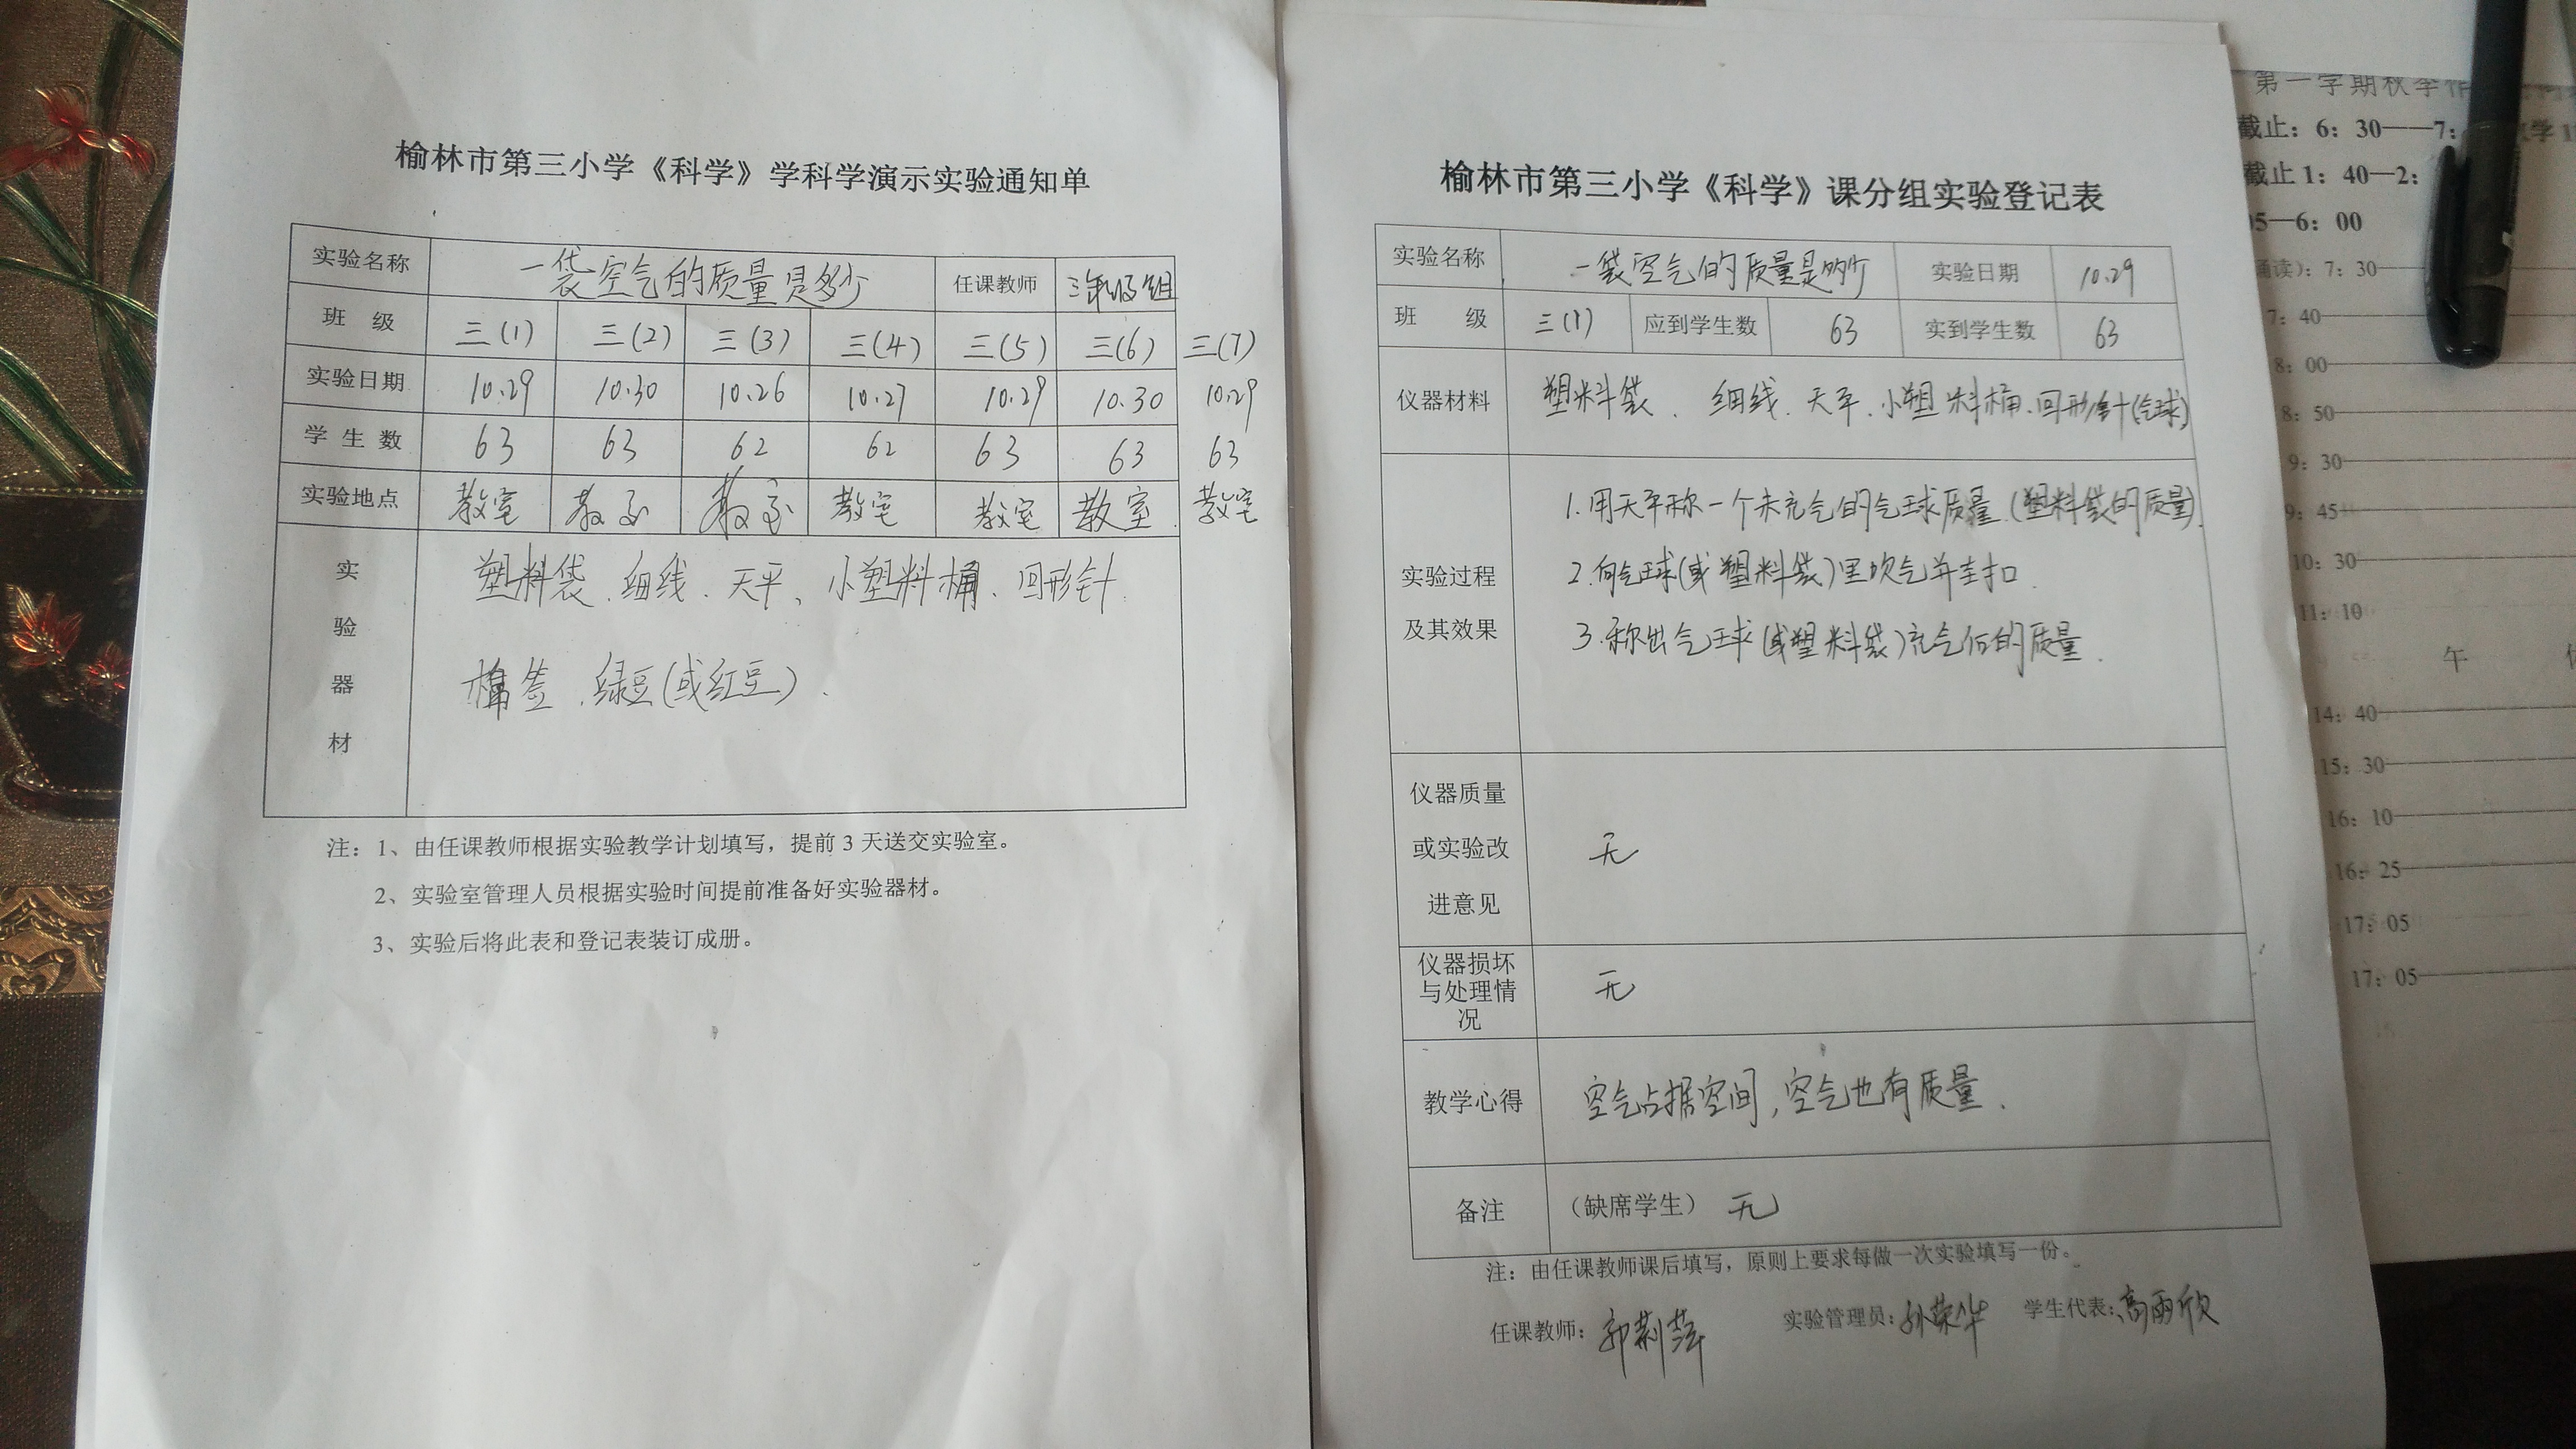 榆林市第三小学《科学》学科学演示实验通知单
实验名称 一袋空气的质量是多少 任课教师 三年级组
班 级 三(1) 三(2) 三(3) 三(4) 三(5) 三(6) 三(7)
实验日期 10.29 10.30 10.26 10.27 10.29 10.30 10.29
学 生 数 63 63 62 62 63 63 63
实验地点 教室 教室 教室 教室 教室 教室 教室
实验器材
塑料袋、细线、天平、小塑料桶、回形针
棉签、绿豆(或红豆).
注：1、由任课教师根据实验教学计划填写，提前 3 天送交实验室。
2、实验室管理人员根据实验时间提前准备好实验器材。
3、实验后将此表和登记表装订成册。
榆林市第三小学《科学》课分组实验登记表
实验名称 一袋空气的质量是多少 实验日期 10.29
班 级 三(1) 应到学生数 63 实到学生数 63
仪器材料 塑料袋、细线、天平、小塑料桶、回形针(气球)
实验过程
及其效果
1.用天平称一个未充气的气球质量.(塑料袋的质量).
2.向气球(或塑料袋)里吹气并封扣.
3.称出气球(或塑料袋)充气后的质量.
仪器质量
或实验改
进意见
无
仪器损坏
与处理情
况
无
教学心得 空气占据空间,空气也有质量.
备注 （缺席学生） 无
注：由任课教师课后填写，原则上要求每做一次实验填写一份。
任课教师： 实验管理员：孙荣华 学生代表：高雨欣
第一学期秋季作
截止：6：30——7：
截止 1：40—2：
05—6：00
诵读）：7：30
7：40
8：00
8：50
9：30
9：45
10：30
11：10
午
14：40
15：30
16：10
16：25
17：05
17：05